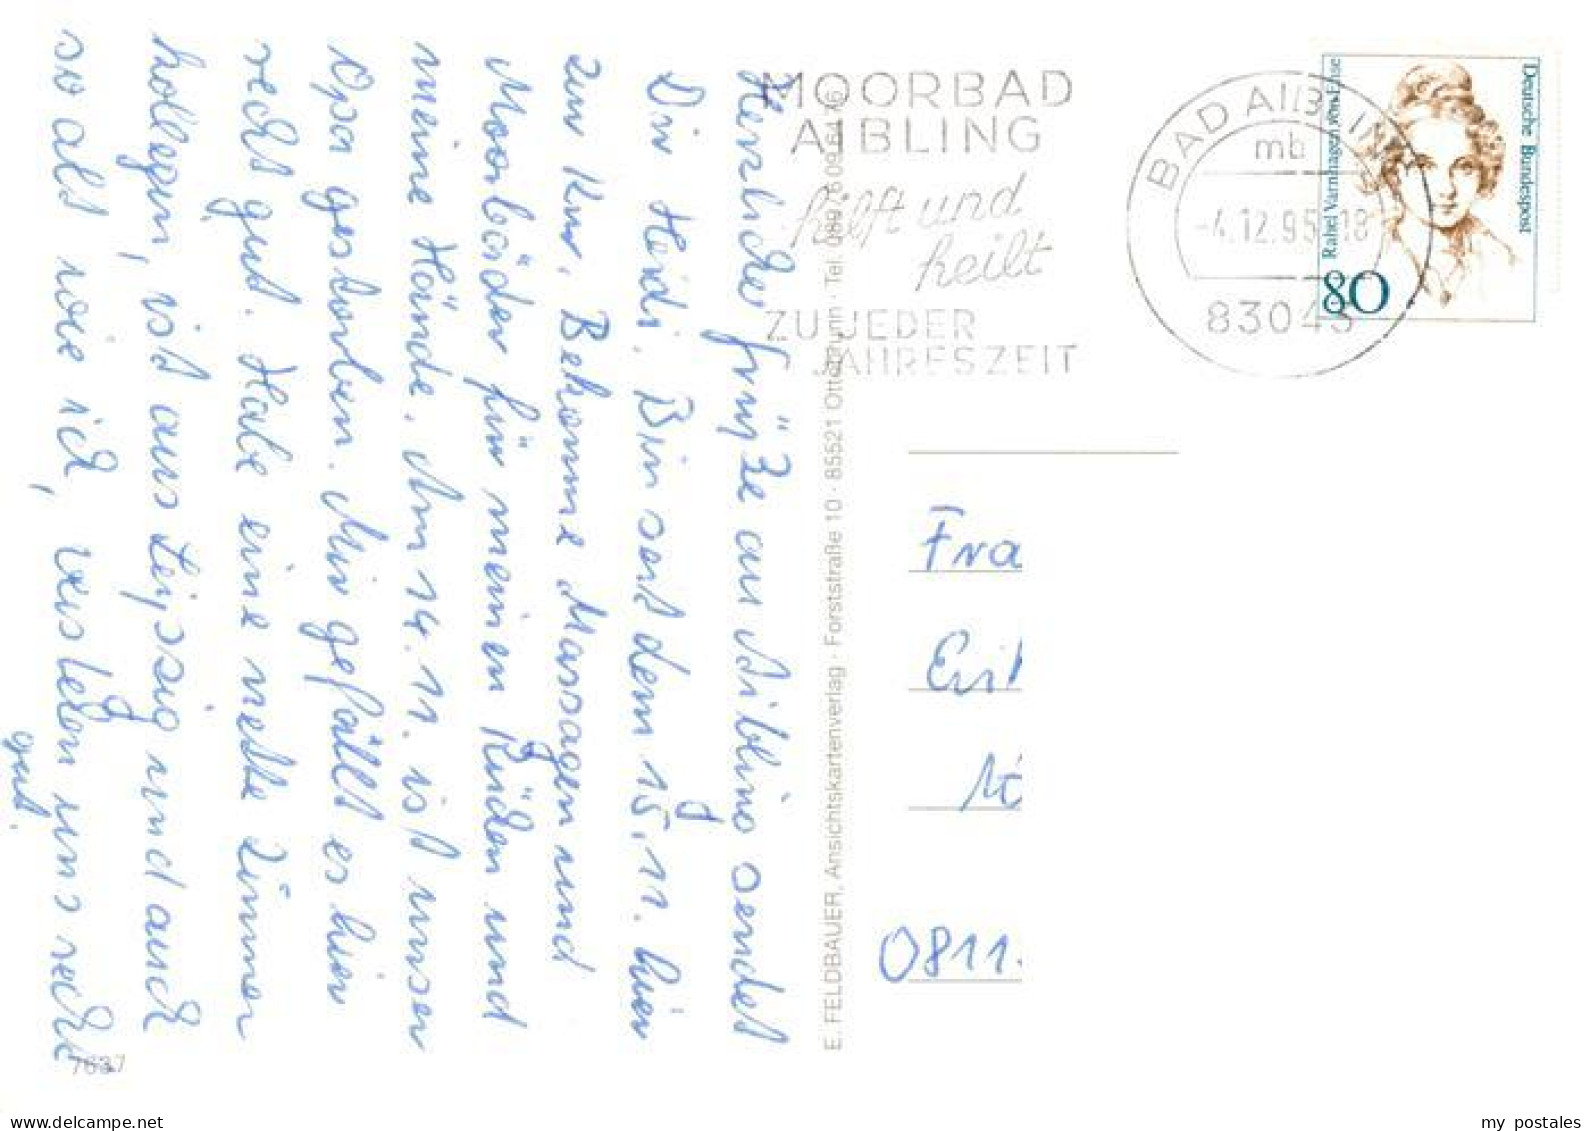 Herzliche Grüße aus Aibling sendet
Dir Heidi. Bin seit dem 15.11. hier
zur Kur. Bekomme Massagen und
Moorbäder für meinen Rücken und
meine Hände. Am 14.11. ist unser
Opa gestorben. Mir gefällt es hier
recht gut. Habe eine nette Zimmer
kollegin, ist aus Leipzig und auch
so alt wie ich, verstehen uns recht
gut.
7637
E. FELDBAUER, Ansichtskartenverlag · Forststraße 10 · 85521 Ottobrunn · Tel. 089 / 609 64 76
MOORBAD
AIBLING
hilft und
heilt
ZU JEDER
JAHRESZEIT
BAD AIBLING
mb
-4.12.95-18
83043
Deutsche Bundespost
Rahel Varnhagen von Ense
80
Fra
0811
my postales